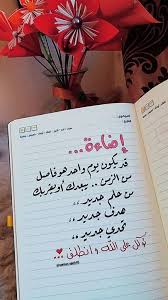 إضاءة...
قد يكون يوم واحد هو فاصل
من الزمن .. يبعدك أو يقربك
من حلم جديد ،،
هدف جديد ،،
تحدي جديد ،،
توكل على الله وانطلق ..